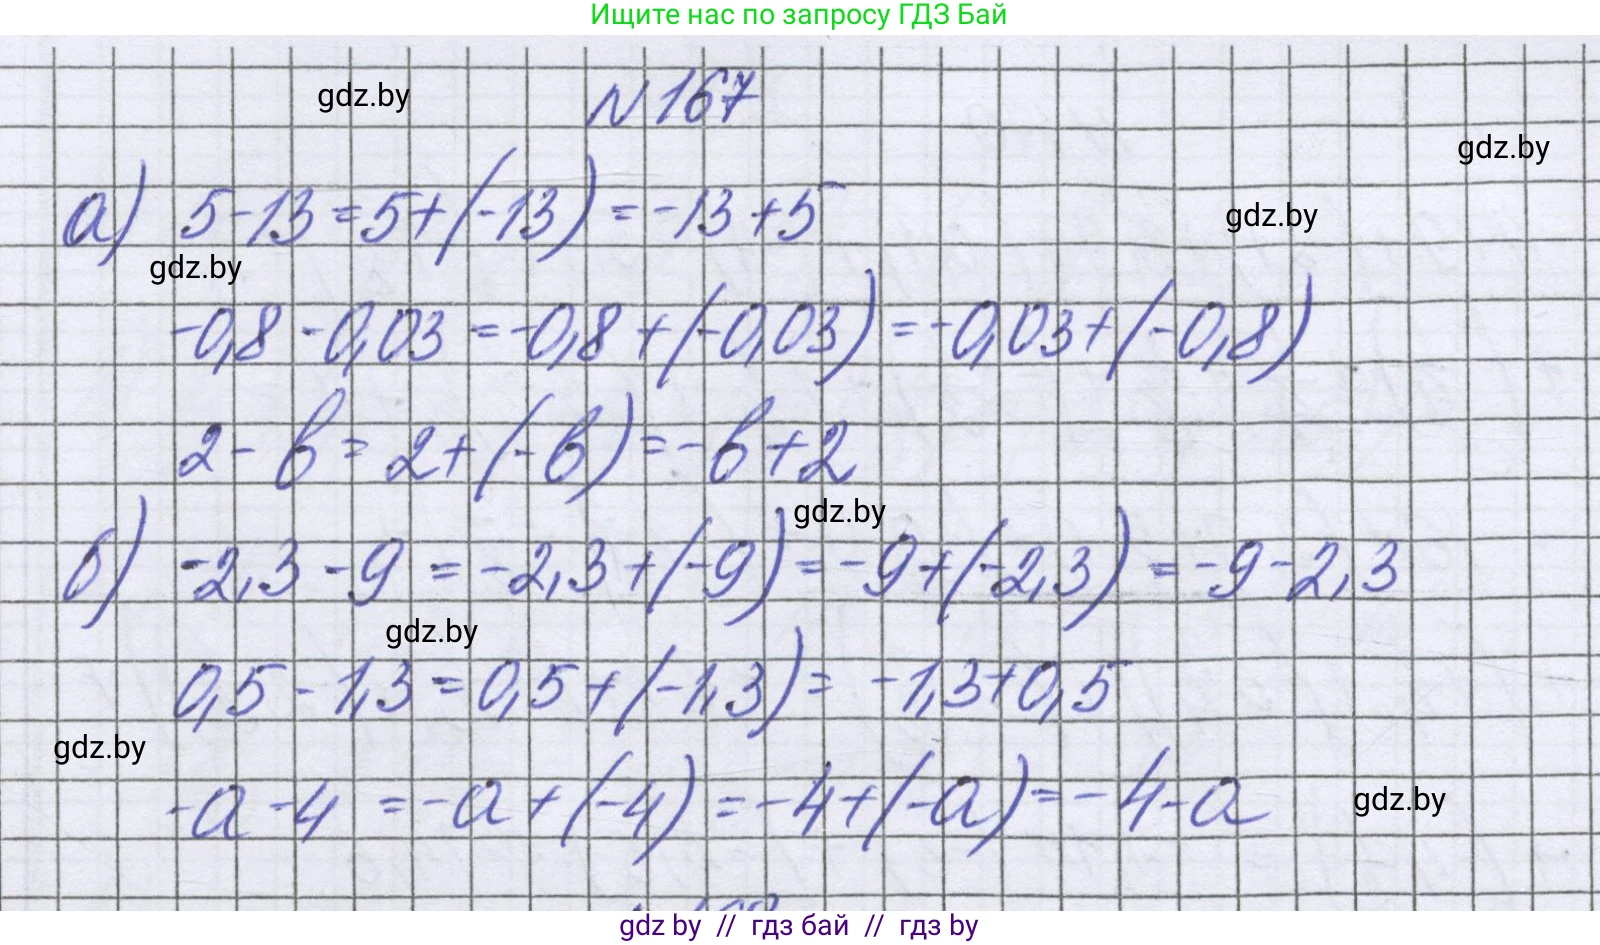 Ищите нас по запросу ГДЗ Бай
gdz.by
N167
gdz.by
а) 5-13=5+(-13)=-13+5
gdz.by
gdz.by
-0,8-0,03=-0,8+(-0,03)=-0,03+(-0,8)
2-в=2+(-в)=-в+2
gdz.by
б) -2,3-9=-2,3+(-9)=-9+(-2,3)=-9-2,3
gdz.by
0,5-1,3=0,5+(-1,3)=-1,3+0,5
gdz.by
-а-4=-а+(-4)=-4+(-а)=-4-а
gdz.by
gdz by // гдз бай // гдз by